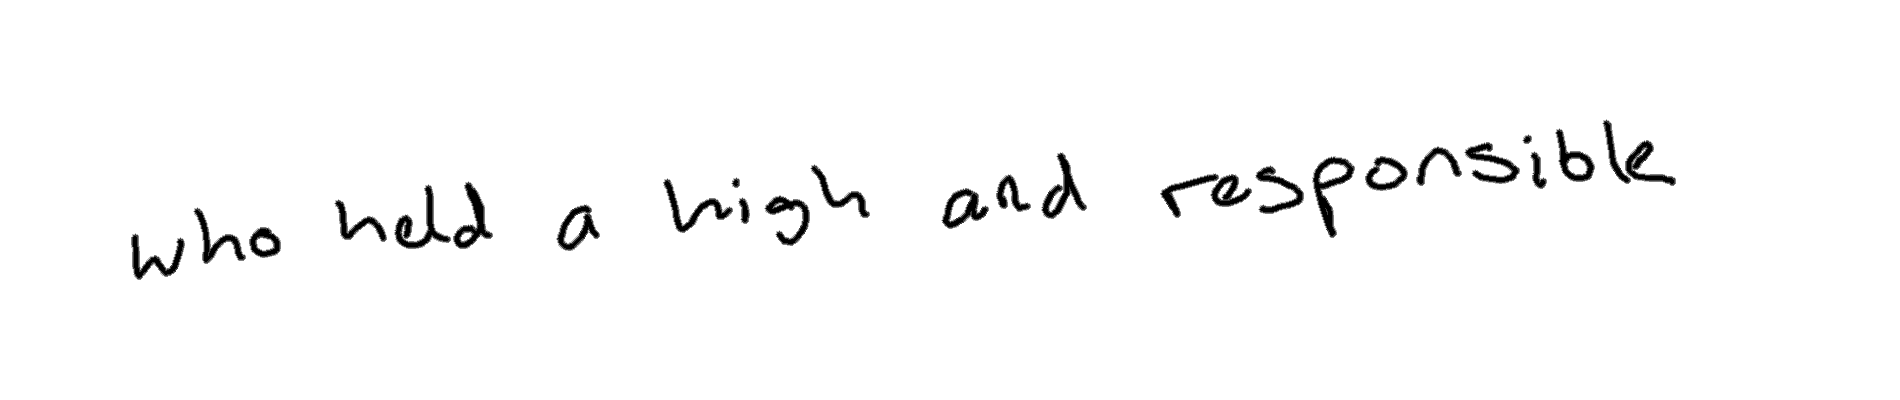 who held a high and responsible